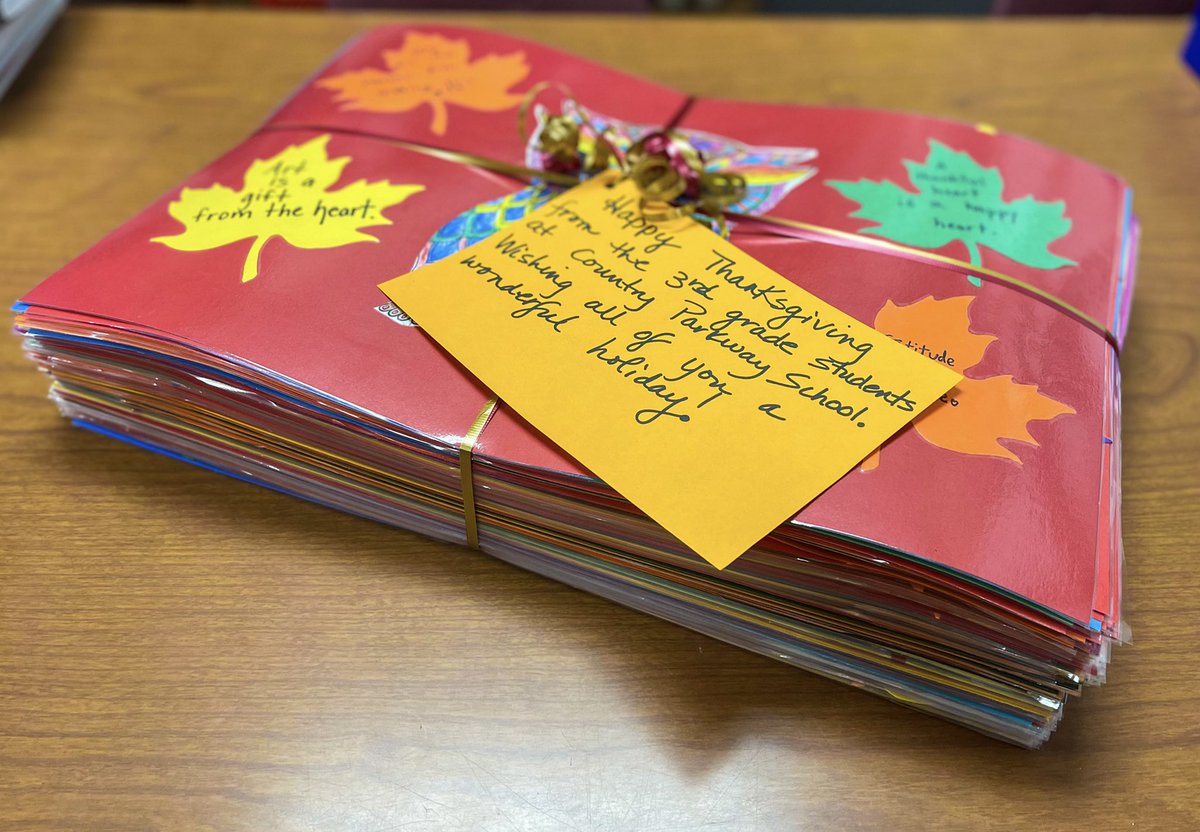 Art
is a
gift
from the heart.
A
thankful
heart
is a happy
heart.
Happy Thanksgiving
from the 3rd grade students
at Country Parkway School.
Wishing all of you a
wonderful holiday.